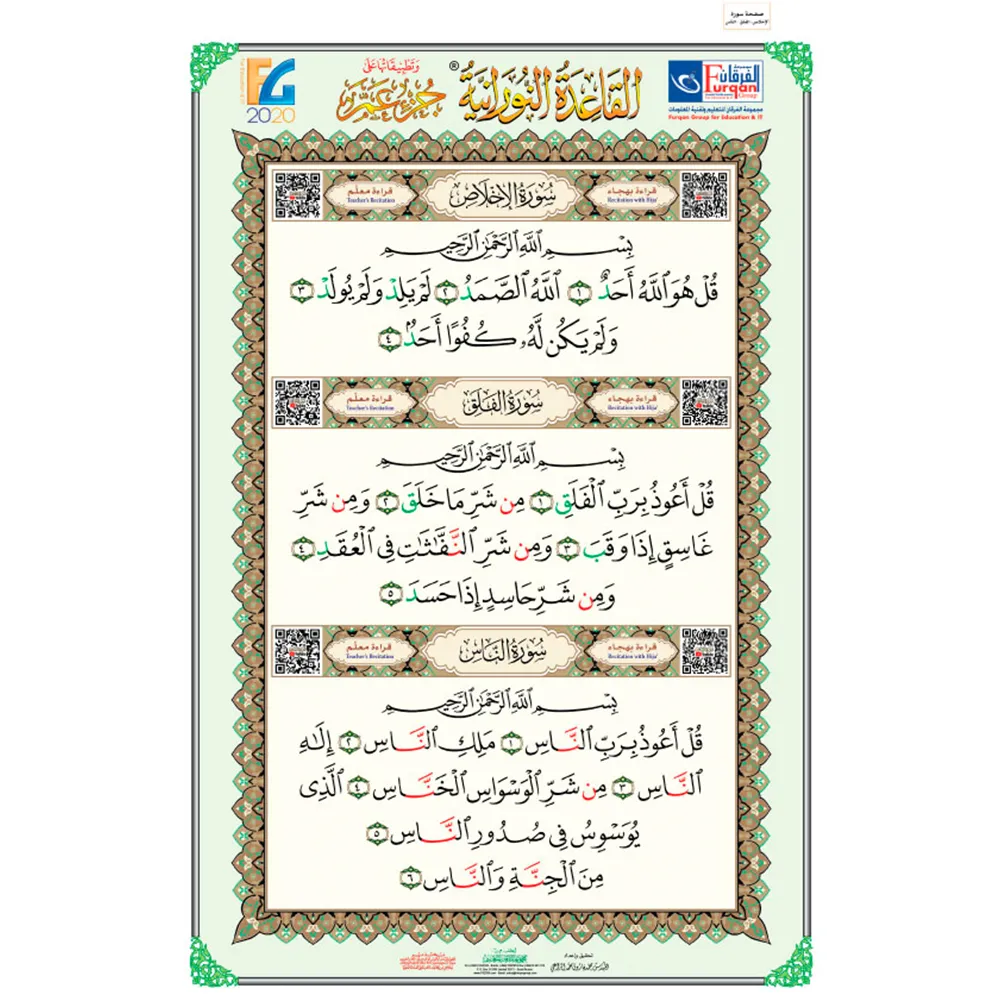 صفحة سورة
الإخلاص - الفلق - الناس
القاعدة النورانية ®
وتطبيقاتها على
جزء عم
FG
2020
الفرقان
Furqan
Group
مجموعة الفرقان للتعليم وتقنية المعلومات
Furqan Group for Education & IT
قراءة بهجاء
Recitation with Hija'
سُورَةُ الإِخْلَاصِ
قراءة معلّم
Teacher's Recitation
بِسْمِ اللَّهِ الرَّحْمَٰنِ الرَّحِيمِ
قُلْ هُوَ اللَّهُ أَحَدٌ ١ اللَّهُ الصَّمَدُ ٢ لَمْ يَلِدْ وَلَمْ يُولَدْ ٣
وَلَمْ يَكُن لَّهُۥ كُفُوًا أَحَدٌۢ ٤
قراءة بهجاء
Recitation with Hija'
سُورَةُ الفَلَقِ
قراءة معلّم
Teacher's Recitation
بِسْمِ اللَّهِ الرَّحْمَٰنِ الرَّحِيمِ
قُلْ أَعُوذُ بِرَبِّ الْفَلَقِ ١ مِن شَرِّ مَا خَلَقَ ٢ وَمِن شَرِّ
غَاسِقٍ إِذَا وَقَبَ ٣ وَمِن شَرِّ النَّفَّٰثَٰتِ فِي الْعُقَدِ ٤
وَمِن شَرِّ حَاسِدٍ إِذَا حَسَدَ ٥
قراءة بهجاء
Recitation with Hija'
سُورَةُ النَّاسِ
قراءة معلّم
Teacher's Recitation
بِسْمِ اللَّهِ الرَّحْمَٰنِ الرَّحِيمِ
قُلْ أَعُوذُ بِرَبِّ النَّاسِ ١ مَلِكِ النَّاسِ ٢ إِلَٰهِ
النَّاسِ ٣ مِن شَرِّ الْوَسْوَاسِ الْخَنَّاسِ ٤ الَّذِي
يُوَسْوِسُ فِي صُدُورِ النَّاسِ ٥
مِنَ الْجِنَّةِ وَالنَّاسِ ٦